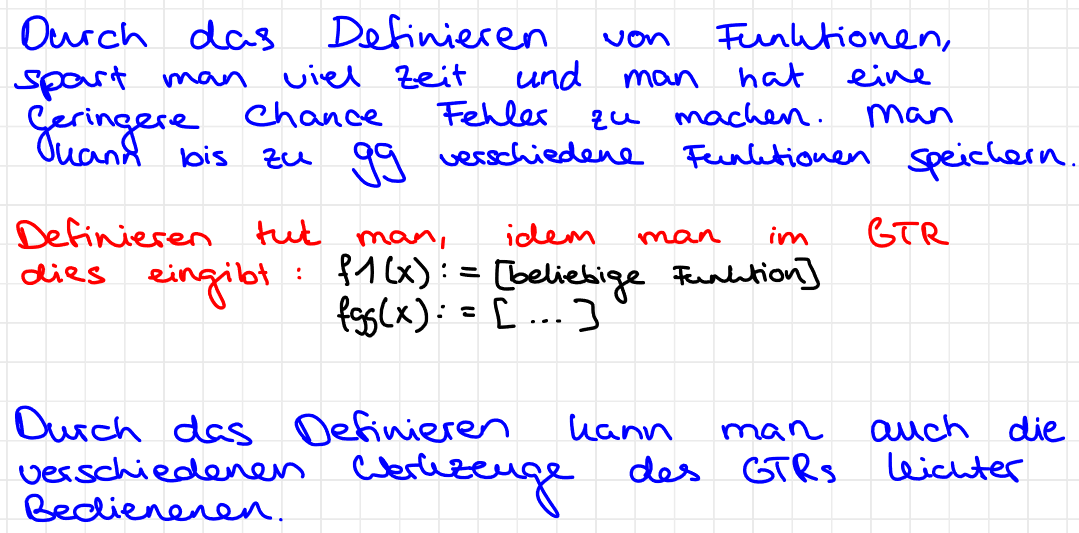 Durch das Definieren von Funktionen,
spart man viel Zeit und man hat eine
Geringere Chance Fehler zu machen. Man
kann bis zu 99 verschiedene Funktionen speichern.
Definieren tut man, idem man im GTR
dies eingibt: f1(x):= [beliebige Funktion]
f99(x):= [...]
Durch das Definieren kann man auch die
verschiedenen Werkzeuge des GTRs leichter
Bedienenen.